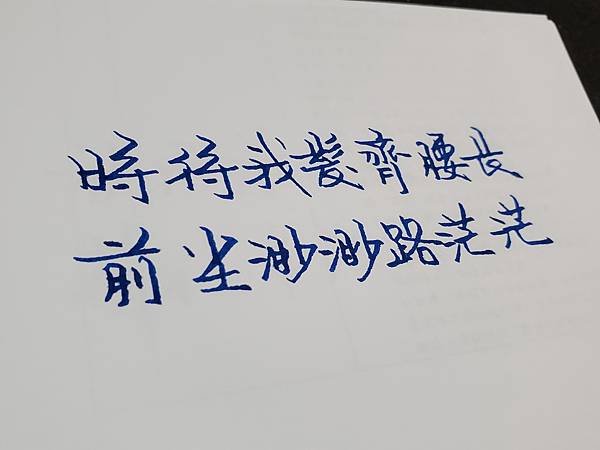 時待我髮齊腰長
前坐渺渺路茫茫